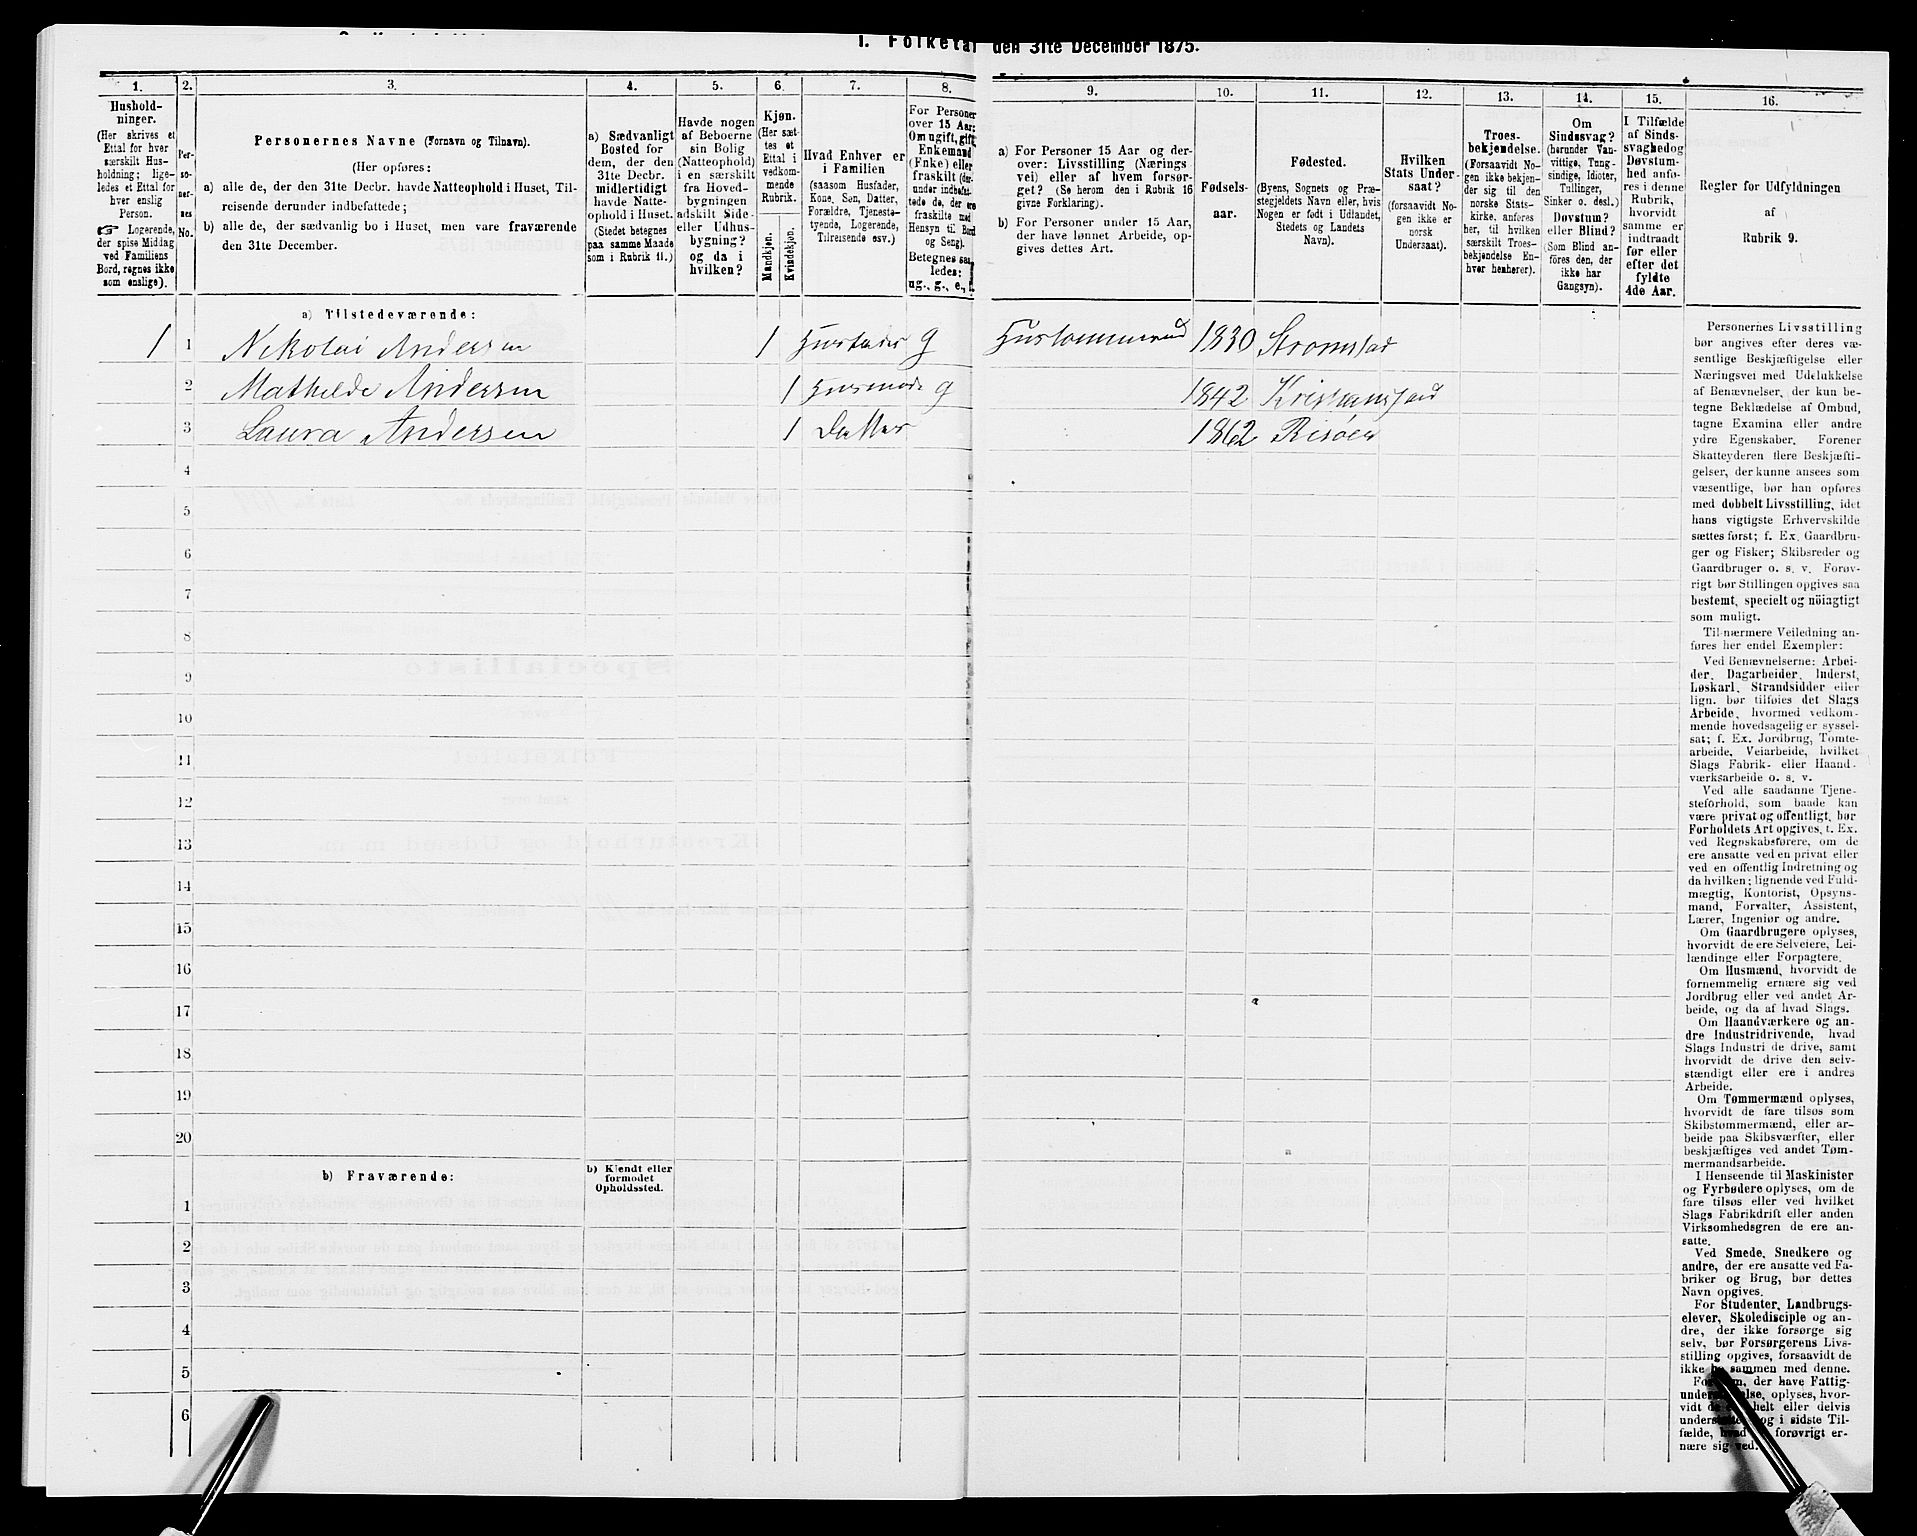 I. Folketal den 31te December 1875.
1.
Hushold-
ninger.
(Her skrives et
Ettal for hver
særskilt Hus-
holdning; lige-
ledes et Ettal for
hver enslig
Person.
☞ Logerende,
der spise Middag
ved Familiens
Bord, regnes ikke
som enslige).
2.
Per-
so-
ner-
nes
No.
3.
Personernes Navne (Fornavn og Tilnavn).
(Her opføres:
a) alle de, der den 31te Decbr. havde Natteophold i Huset, Til-
reisende derunder indbefattede;
b) alle de, der sædvanlig bo i Huset, men vare fraværende
den 31te December.
4.
a) Sædvanligt
Bosted for
dem, der den
31te Decbr.
midlertidigt
havde Natte-
ophold i Huset.
(Stedet betegnes
paa samme Maade
som i Rubrik 11.)
5.
Havde nogen
af Beboerne
sin Bolig
(Natteophold)
i en særskilt
fra Hoved-
bygningen
adskilt Side-
eller Udhus-
bygning?
og da i
hvilken?
6.
Kjøn.
(Her sæt-
tes et
Ettal i
vedkom-
mende
Rubrik.
Mandkjøn.
Kvindekjøn.
7.
Hvad Enhver er
i Familien
(saasom Husfader,
Kone, Søn, Datter,
Forældre, Tjeneste-
tyende, Logerende,
Tilreisende osv.)
8.
For Personer
over 15 Aar:
Om ugift, gift,
Enkemand
(Enke) eller
fraskilt (der-
under indbefat-
tede de, der ere
fraskilte med
Hensyn til Bord
og Seng).
Betegnes saa-
ledes:
ug., g., e., f.
9.
a) For Personer 15 Aar og der-
over: Livsstilling (Nærings
vei) eller af hvem forsør-
get? (Se herom den i Rubrik 16
givne Forklaring).
b) For Personer under 15 Aar,
der have lønnet Arbeide, op-
gives dettes Art.
10.
Fødsels-
aar.
11.
Fødested.
(Byens, Sognets og Præ-
stegjeldets Navn eller, hvis
Nogen er født i Udlandet,
Stedets og Landets
Navn).
12.
Hvilken
Stats Under-
saat?
(forsaavidt No-
gen ikke er
norsk
Undersaat).
13.
Troes-
bekjendelse.
(Forsaavidt No-
gen ikke bekjen-
der sig til den
norske Stats-
kirke, anføres
her, til hvilken
særskilt Troes-
bekjendelse En-
hver henhører).
14.
Om
Sindssvag?
(herunder Van-
vittige, Tung-
sindige, Idioter,
Tullinger,
Sinker o. desl.)
Døvstum?
eller Blind?
(Som Blind an-
føres den, der
ikke har
Gangsyn).
15.
I Tilfælde
af Sinds-
svaghed og
Døvstum-
hed anfø-
res i denne
Rubrik,
hvorvidt
samme er
indtraadt
før eller
efter det
fyldte
4de Aar.
16.
Regler for Udfyldningen
af
Rubrik 9.
a) Tilstedeværende:
1 1 Nikolai Andersen 1 Husfader g Hustømmermand 1830 Stromstad
2 Mathilde Andersen 1 Husmoder g 1842 Kristianstad
3 Laura Andersen 1 Datter 1862 Risøer
4
5
6
7
8
9
10
11
12
13
14
15
16
17
18
19
20
b) Fraværende:
b) Kjendt eller
formodet
Opholdssted.
1
2
3
4
5
6
Personernes Livsstilling
bør angives efter deres væ-
sentlige Beskjæftigelse eller
Næringsvei med Udelukkelse
af Benævnelser, der kun be-
tegne Beklædelse af Ombud,
tagne Examina eller andre
ydre Egenskaber. Forener
Skatteyderen flere Beskjæfti-
gelser, der kunne ansees som
væsentlige, bør han opføres
med dobbelt Livsstilling, idet
hans vigtigste Erhvervskilde
sættes først; f. Ex. Gaardbru-
ger og Fisker; Skibsreder og
Gaardbruger o. s. v. Forøv-
rigt bør Stillingen opgives saa
bestemt, specielt og nöiagtigt
som muligt.
Til nærmere Veiledning an-
føres her endel Exempler:
Ved Benævnelserne: Arbei-
der, Dagarbeider, Inderst,
Løskarl, Strandsidder eller
lign. bør tilføies det Slags
Arbeide, hvormed vedkom-
mende hovedsagelig er syssel-
sat; f. Ex. Jordbrug, Tomte-
arbeide, Veiarbeide, hvilket
Slags Fabrik- eller Haand-
værksarbeide o. s. v.
Ved alle saadanne Tjene-
steforhold, som baade kan
være privat og offentligt, bør
Forholdets Art opgives, t. Ex.
ved Regnskabsførere, om de
ere ansatte ved en privat eller
ved en offentlig Indretning og
da hvilken; lignende ved Fuld-
mægtig, Kontorist, Opsyns-
mand, Forvalter, Assistent,
Lærer, Ingeniør og andre.
Om Gaardbrugere oplyses,
hvorvidt de ere Selveiere, Lei-
lændinge eller Forpagtere.
Om Husmænd, hvorvidt de
fornemmelig ernære sig ved
Jordbrug eller ved andet Ar-
beide, og da af hvad Slags.
Om Haandværkere og an-
dre Industridrivende, hvad
Slags Industri de drive, samt
hvorvidt de drive den selv-
stændigt eller ere i andres
Arbeide.
Om Tømmermænd oplyses,
hvorvidt de fare tilsøs som
Skibstømmermænd, eller ar-
beide paa Skibsværfter, eller
beskjæftiges ved andet Tøm-
mermandsarbeide.
I Henseende til Maskinister
og Fyrbødere oplyses, om de
fare tilsøs eller ved hvilket
Slags Fabrikdrift eller anden
Virksomhedsgren de ere an-
satte.
Ved Smede, Snedkere og
andre, der ere ansatte ved Fa-
briker og Brug, bør dettes
Navn opgives.
For Studenter, Landbrugs-
elever, Skoledisciple og an-
dre, der ikke forsørge sig
selv, bør Forsørgerens Livs-
stilling opgives, forsaavidt de
ikke bo sammen med denne.
For dem, der have Fattig-
understøttelse, oplyses, hvor-
vidt de ere helt eller delvis
understøttede og i sidste Til-
fælde, hvad de forøvrigt er-
nære sig ved.